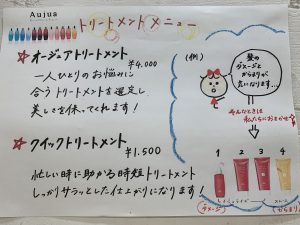 Aujua
トリートメントメニュー
☆オージュアトリートメント
¥4,000
一人ひとりのお悩みに
合うトリートメントを選定し
美しさを保ってくれます!
☆クイックトリートメント
¥1,500
忙しい時に助かる時短トリートメント
しっかりサラッとした仕上がりになります!
(例)
髪の
ダメージと
広がりが
気になります…
そんなときは
私たちにおまかせ
1 2 3 4
ダメージ
広がり